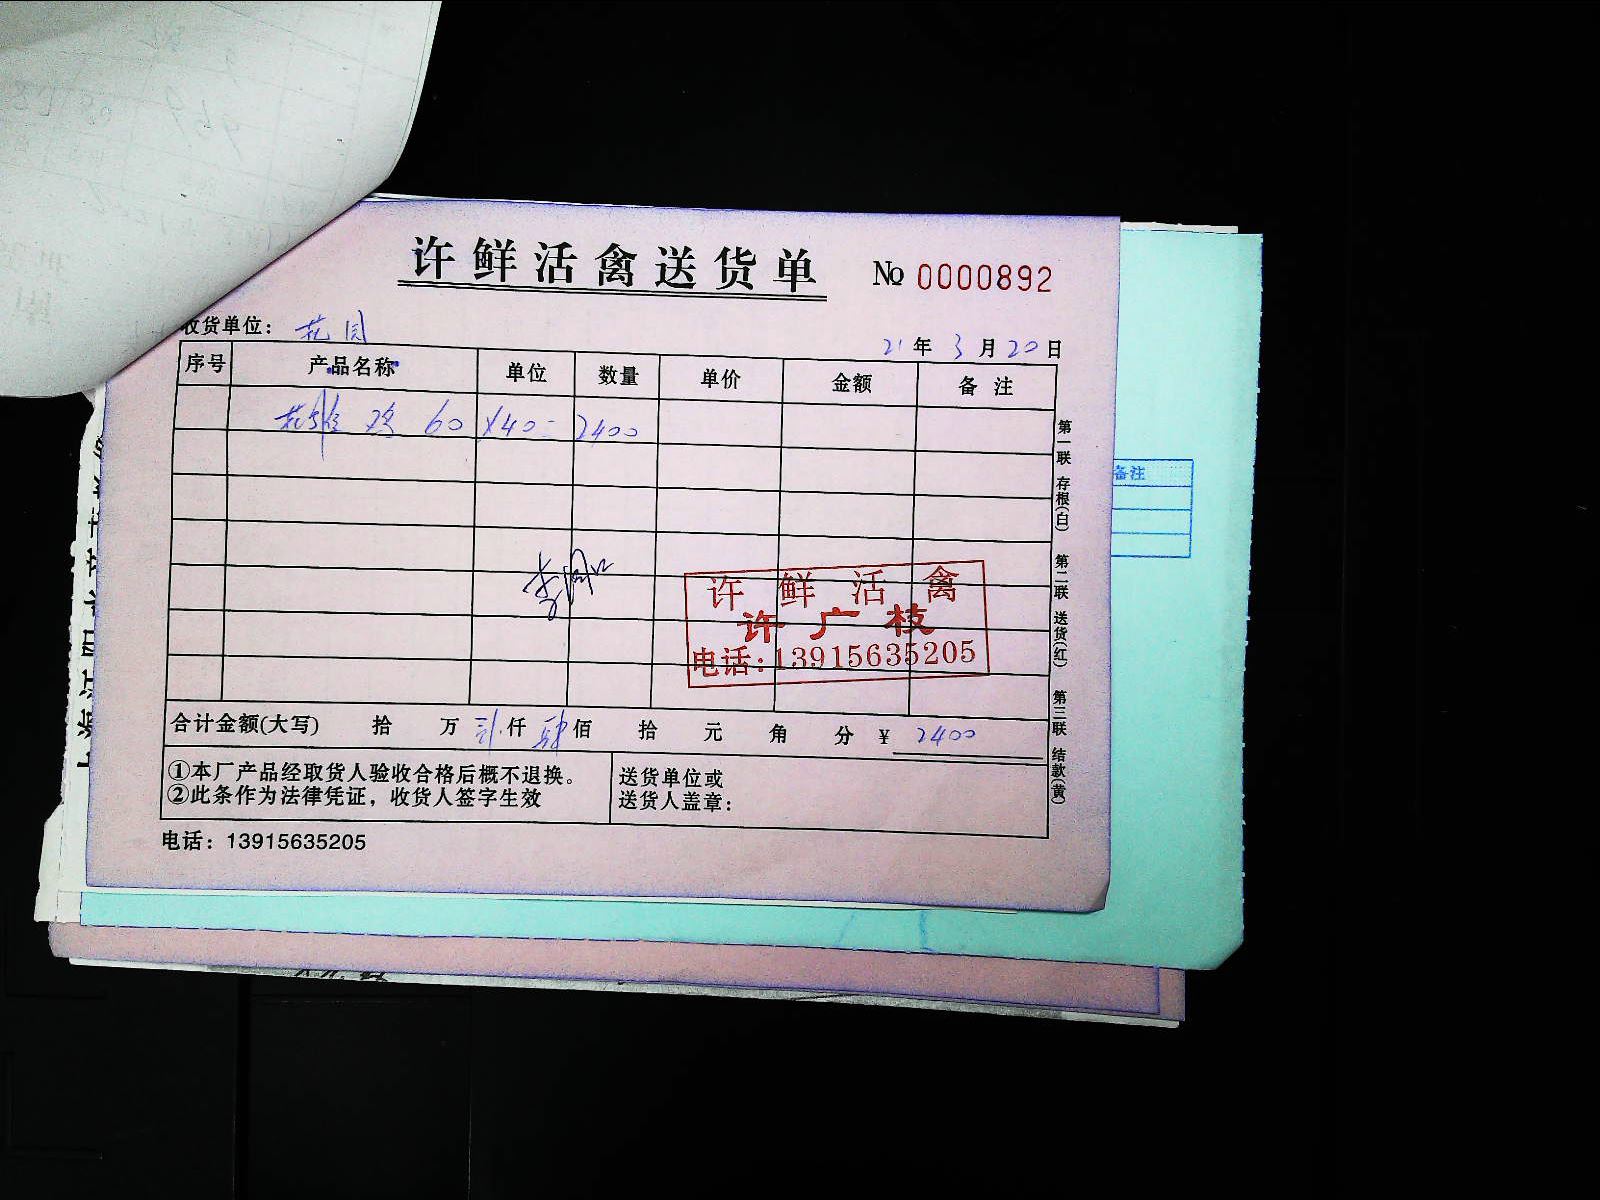 许鲜活禽送货单 № 0000892
收货单位: 花园
21年3月20日
序号 产品名称 单位 数量 单价 金额 备注
鸡 60 X40= 2400
许鲜活禽
许广枝
电话:13915635205
合计金额(大写) 拾 万 贰仟 肆佰 拾 元 角 分 ¥ 2400
①本厂产品经取货人验收合格后概不退换。
②此条作为法律凭证，收货人签字生效
送货单位或
送货人盖章:
电话: 13915635205
第一联 存根(白) 第二联 送货(红) 第三联 结款(黄)
备注